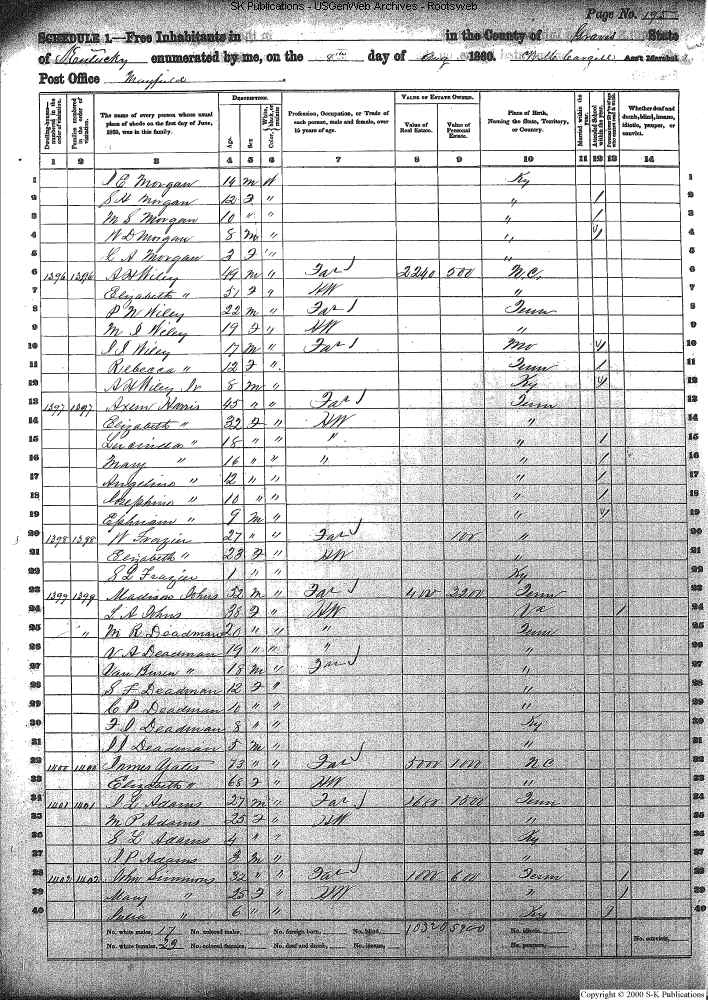 SK Publications - USGenWeb Archives - Rootsweb
Page No. 195
SCHEDULE 1.—Free Inhabitants in in the County of Graves State
of Kentucky enumerated by me, on the 8th day of Aug 1860. Ass't Marshal
Post Office Mayfield
Dwelling-houses—numbered in the order of visitation.
Families numbered in the order of visitation.
The name of every person whose usual place of abode on the first day of June, 1860, was in this family.
DESCRIPTION.
Age.
Sex
Color,
Profession, Occupation, or Trade of each person, male and female, over 15 years of age.
VALUE OF ESTATE OWNED.
Value of Real Estate.
Value of Personal Estate.
Place of Birth, Naming the State, Territory, or Country.
Married within the year.
Attended School within the year.
Whether deaf and dumb, blind, insane, idiotic, pauper, or convict.
1 2 3 4 5 6 7 8 9 10 11 12 13 14
1 J E Morgan 14 M W Ky 1
2 S H Morgan 12 F " " / 2
3 M S Morgan 10 " " " / 3
4 W D Morgan 8 M " " / 4
5 C A Morgan 3 F " " 5
6 1396 1396 A H Wiley 49 M " Far 2240 500 N.C. 6
7 Elizabeth " 51 F " HW " 7
8 P W Wiley 22 M " Far Tenn 8
9 M J Wiley 19 F " HW " 9
10 J J Wiley 17 M " Far Mo / 10
11 Rebecca " 12 F " Tenn / 11
12 A H Wiley Jr 8 M " Ky / 12
13 1397 1397 Axem Harris 45 " " Far Tenn 13
14 Elizabeth " 32 F " HW " 14
15 Lucindia " 18 " " " " / 15
16 Mary " 16 " " " " / 16
17 Angeline " 12 " " " / 17
18 Josephine " 10 " " " / 18
19 Ephriam " 9 M " " / 19
20 1398 1398 W Frazier 27 " " Far 100 " 20
21 Elizabeth " 23 F " HW " 21
22 S L Frazier 1 " " Ky 22
23 1399 1399 Madison Johns 52 M " Far 400 2200 Tenn 23
24 L A Johns 38 F " HW Va / 24
25 " M R Deadman 20 " " " Tenn 25
26 V A Deadman 19 " " " " 26
27 Van Buren " 18 M " Far " 27
28 S F Deadman 12 F " " 28
29 C P Deadman 10 " " " 29
30 F O Deadman 8 " " Ky 30
31 J J Deadman 5 M " " 31
32 1400 1400 James Yates 73 " " Far 5000 1000 N C 32
33 Elizabeth " 68 F " HW " 33
34 1401 1401 J L Adams 27 M " Far 1680 1500 Tenn 34
35 M P Adams 25 F " HW " 35
36 S L Adams 4 " " Ky 36
37 J P Adams 3 M " " 37
38 1402 1402 John Simmons 32 " " Far 1000 600 Tenn / 38
39 Mary " 25 F " HW " / 39
40 6 " " Ky 40
No. white males, 17 No. colored males, No. foreign born, No. blind, 10320 5900 No. idiotic,
No. white females, 23 No. colored females, No. deaf and dumb, No. insane, No. paupers, No. convicts,
Copyright © 2000 S-K Publications